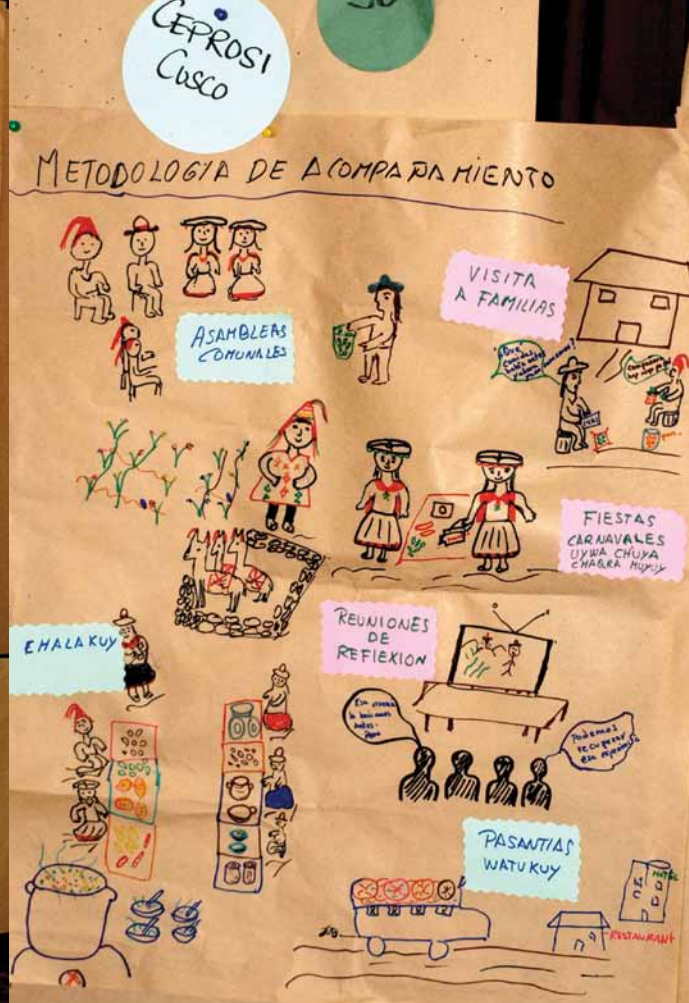 CEPROSI
CUSCO
METODOLOGIA DE ACOMPAÑAMIENTO
ASAMBLEAS
COMUNALES
VISITA
A FAMILIAS
FIESTAS
CARNAVALES
UYWA CHUYA
CHAQRA MUYUY
CHALAKUY
REUNIONES
DE
REFLEXION
Podemos
recuperar
esa
PASANTIAS
WATUKUY
HOTEL
RESTAURANT